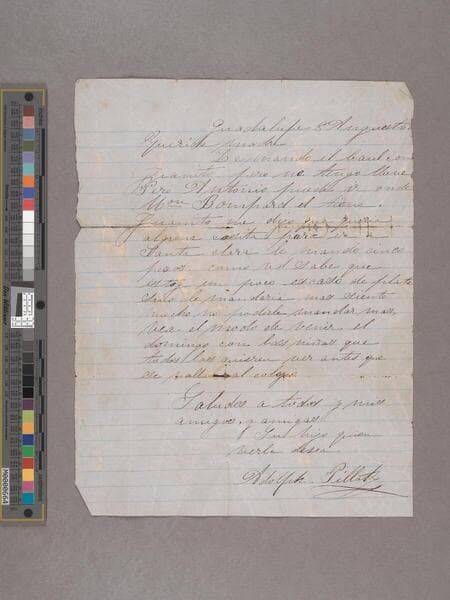 Guadalupe 8 Auguest
Querida madre
Le mando el baul con
Juanito pero no tengo llave
Pero Antonio puede ir onde
Mon Bompard el tiene.
Juanito me dijo que queria
alguna cosita para ir a
Santa clara le mando cinco
pesos como vd sabe que
estoy un poco escaso de plata
sino le mandaria mas siento
mucho no poderle mandar mas,
vea el modo de venir el
domingo con las niñas que
todos las quieren ver antes que
se vallan al colegio
Saludes a todos y mis
amigos y amigas.
Su hijo quien
verla desea
Adolph Pillot